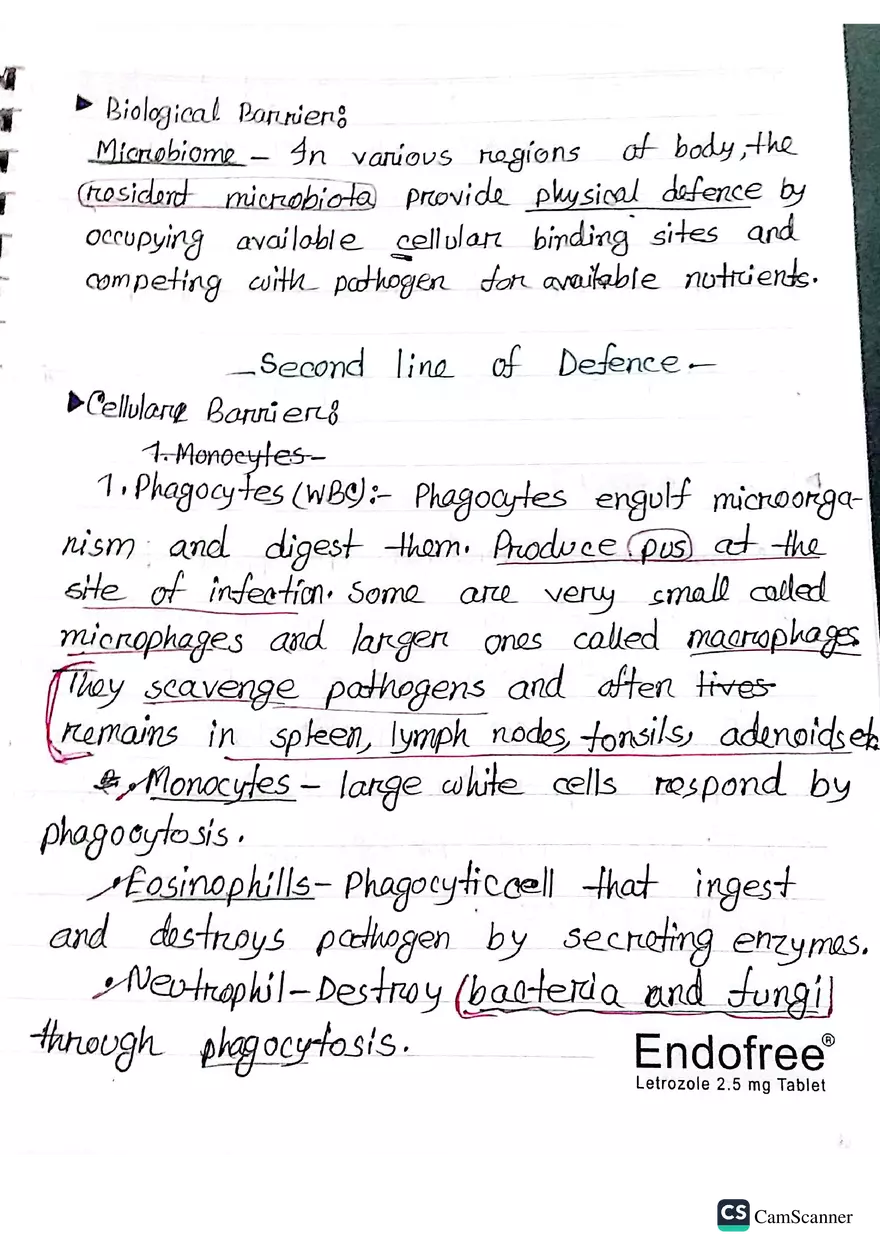 ▶ Biological Barrier:
Microbiome – In various regions of body, the
resident microbiota provide physical defence by
occupying available cellular binding sites and
competing with pathogen for available nutrients.
– Second line of Defence –
▶ Cellular Barrier:
1. Monocytes –
1. Phagocytes (WBC):- Phagocytes engulf microorga-
nism and digest them. Produce pus at the
site of infection. Some are very small called
microphages and larger ones called macrophages.
They scavenge pathogens and often lives
remains in spleen, lymph nodes, tonsils, adenoids etc
• Monocytes – large white cells respond by
phagocytosis.
• Eosinophills – Phagocytic cell that ingest
and destroys pathogen by secreting enzymes.
• Neutrophil – Destroy (bacteria and fungi)
through phagocytosis.
Endofree®
Letrozole 2.5 mg Tablet
CS CamScanner